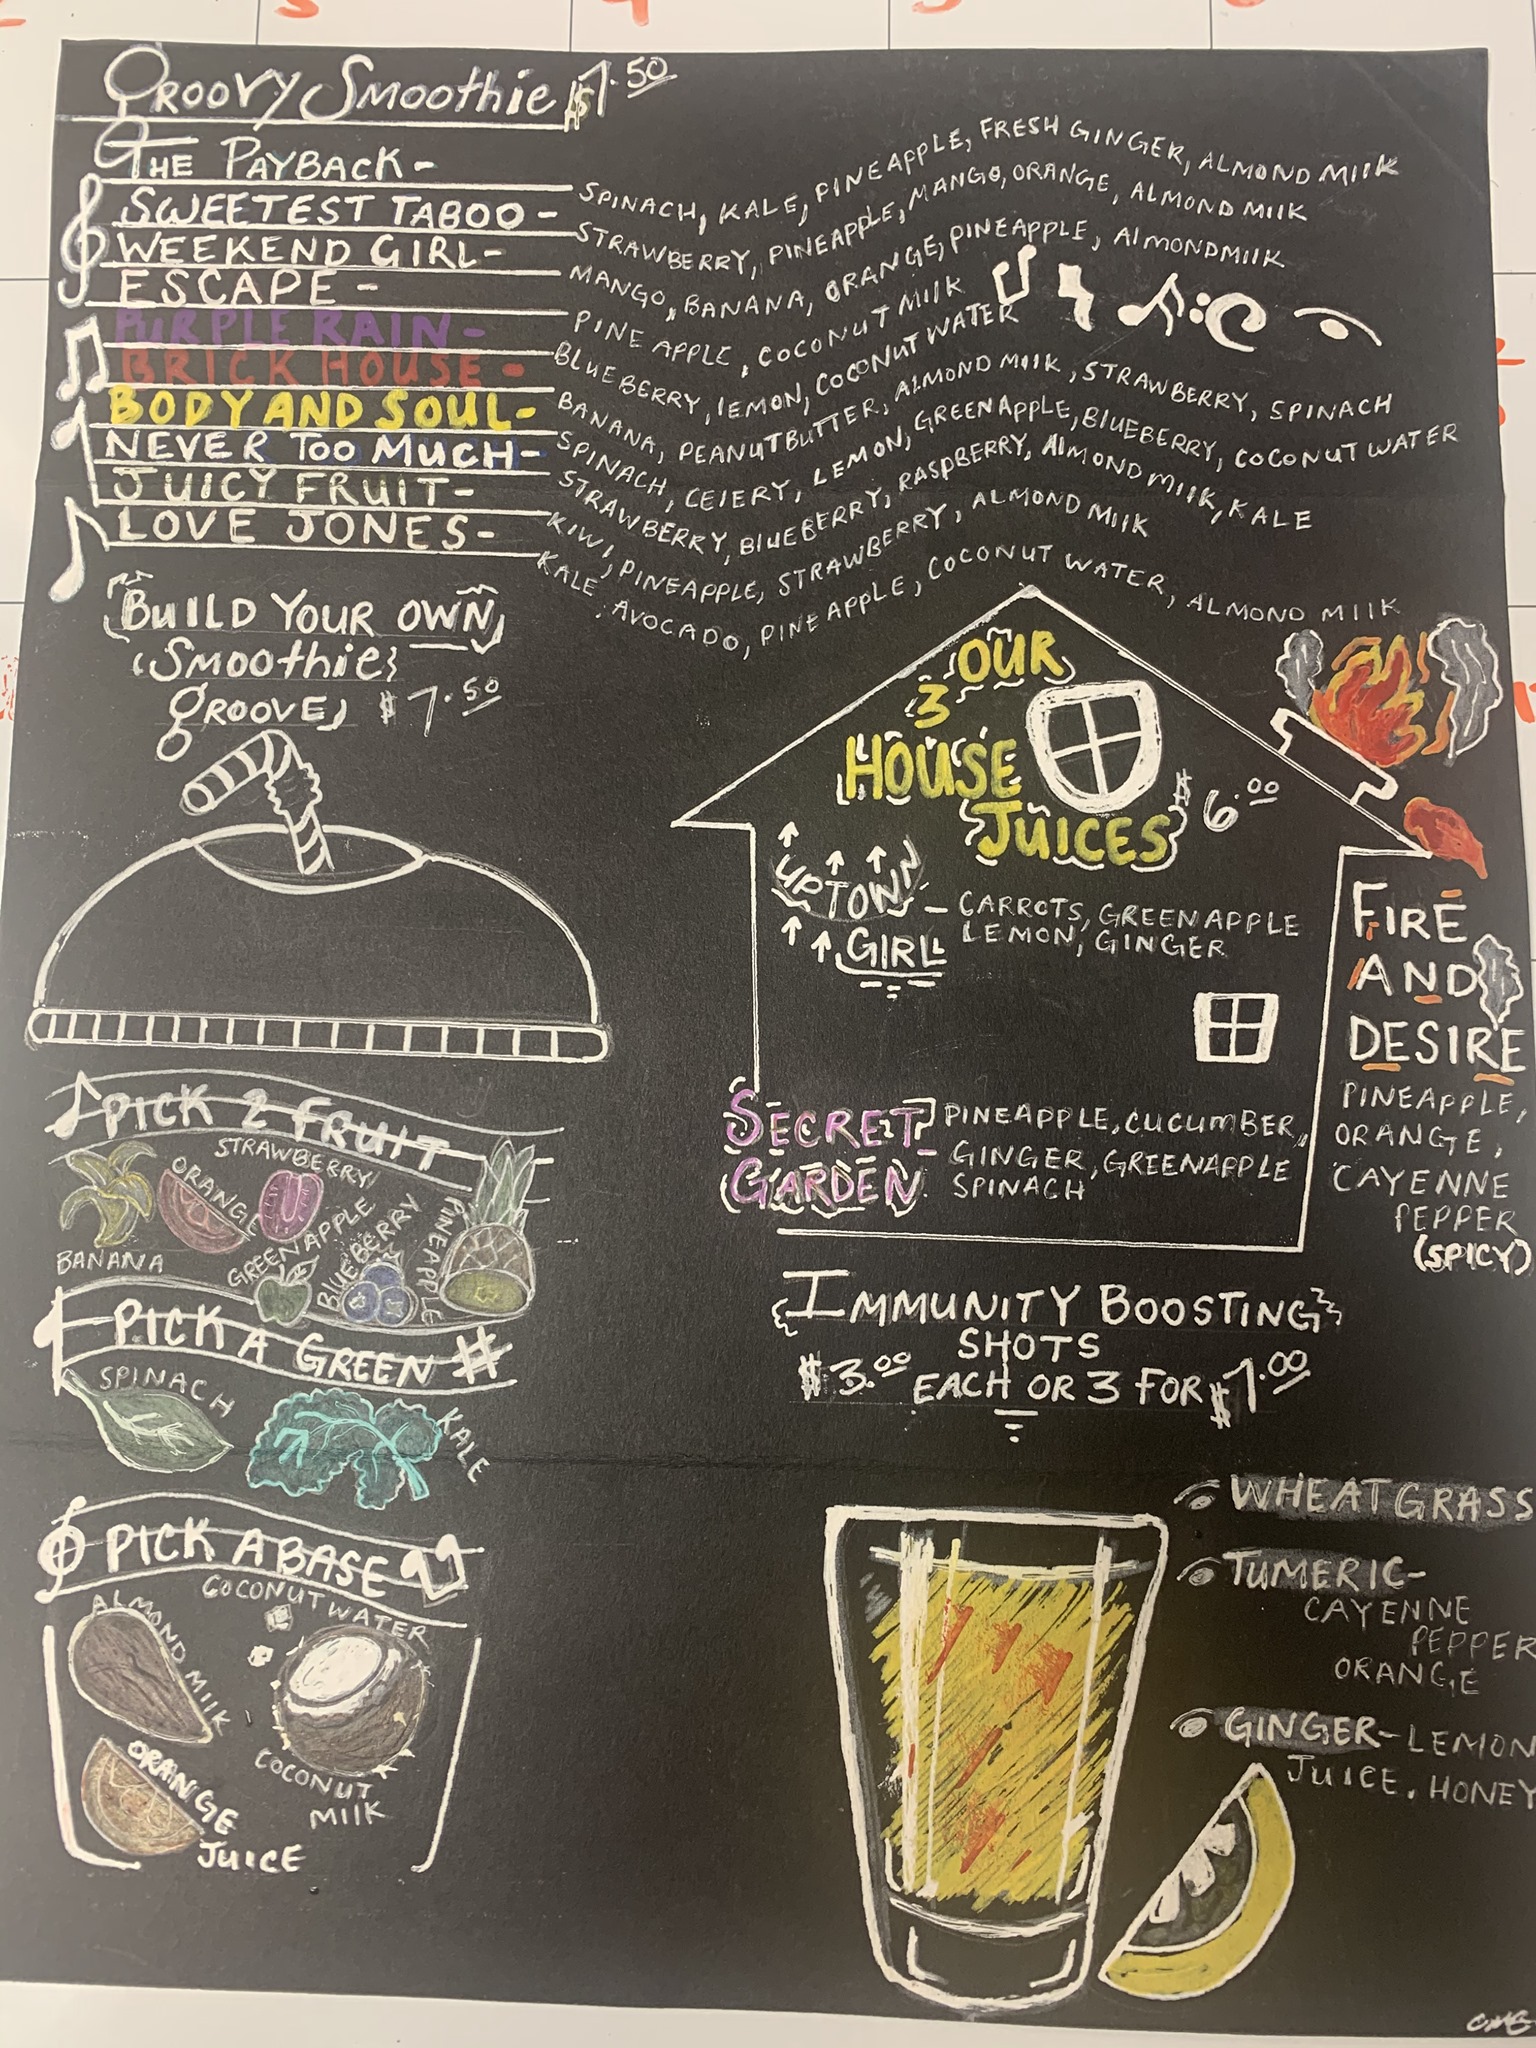 GROOVY SMOOTHIE $7.50
THE PAYBACK - SPINACH, KALE, PINEAPPLE, FRESH GINGER, ALMOND MILK
SWEETEST TABOO - STRAWBERRY, PINEAPPLE, MANGO, ORANGE, ALMOND MILK
WEEKEND GIRL - MANGO, BANANA, ORANGE, PINEAPPLE, ALMONDMILK
ESCAPE - PINEAPPLE, COCONUT MILK
PURPLE RAIN - BLUEBERRY, LEMON, COCONUT WATER
BRICK HOUSE - BANANA, PEANUTBUTTER, ALMOND MILK, STRAWBERRY, SPINACH
BODY AND SOUL - SPINACH, CELERY, LEMON, GREENAPPLE, BLUEBERRY, COCONUT WATER
NEVER TOO MUCH - STRAWBERRY, BLUEBERRY, RASPBERRY, ALMOND MILK, KALE
JUICY FRUIT - KIWI, PINEAPPLE, STRAWBERRY, ALMOND MILK
LOVE JONES - KALE, AVOCADO, PINEAPPLE, COCONUT WATER, ALMOND MILK
BUILD YOUR OWN
SMOOTHIE
GROOVE $7.50
PICK 2 FRUIT
STRAWBERRY
ORANGE
BANANA
GREENAPPLE
BLUEBERRY
PINEAPPLE
PICK A GREEN #
SPINACH
KALE
PICK A BASE
COCONUT WATER
ALMOND MILK
COCONUT
MILK
ORANGE
JUICE
OUR
3
HOUSE
JUICES $6.00
UPTOWN
GIRL - CARROTS, GREENAPPLE
LEMON, GINGER
SECRET
GARDEN - PINEAPPLE, CUCUMBER,
GINGER, GREENAPPLE
SPINACH
FIRE
AND
DESIRE
PINEAPPLE,
ORANGE,
CAYENNE
PEPPER
(SPICY)
IMMUNITY BOOSTING
SHOTS
$3.00 EACH OR 3 FOR $7.00
WHEATGRASS
TUMERIC-
CAYENNE
PEPPER
ORANGE
GINGER-LEMON
JUICE, HONEY
CMG